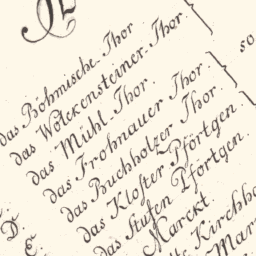 das Böhmische Thor
das Wolckensteiner Thor.
das Mühl Thor.
das Frohnauer Thor.
das Buchholzer Thor.
das Kloster Pförtgen
das Stufen Pfortgen.
Marckt.
Kirchho
Mar
so
D.
E.